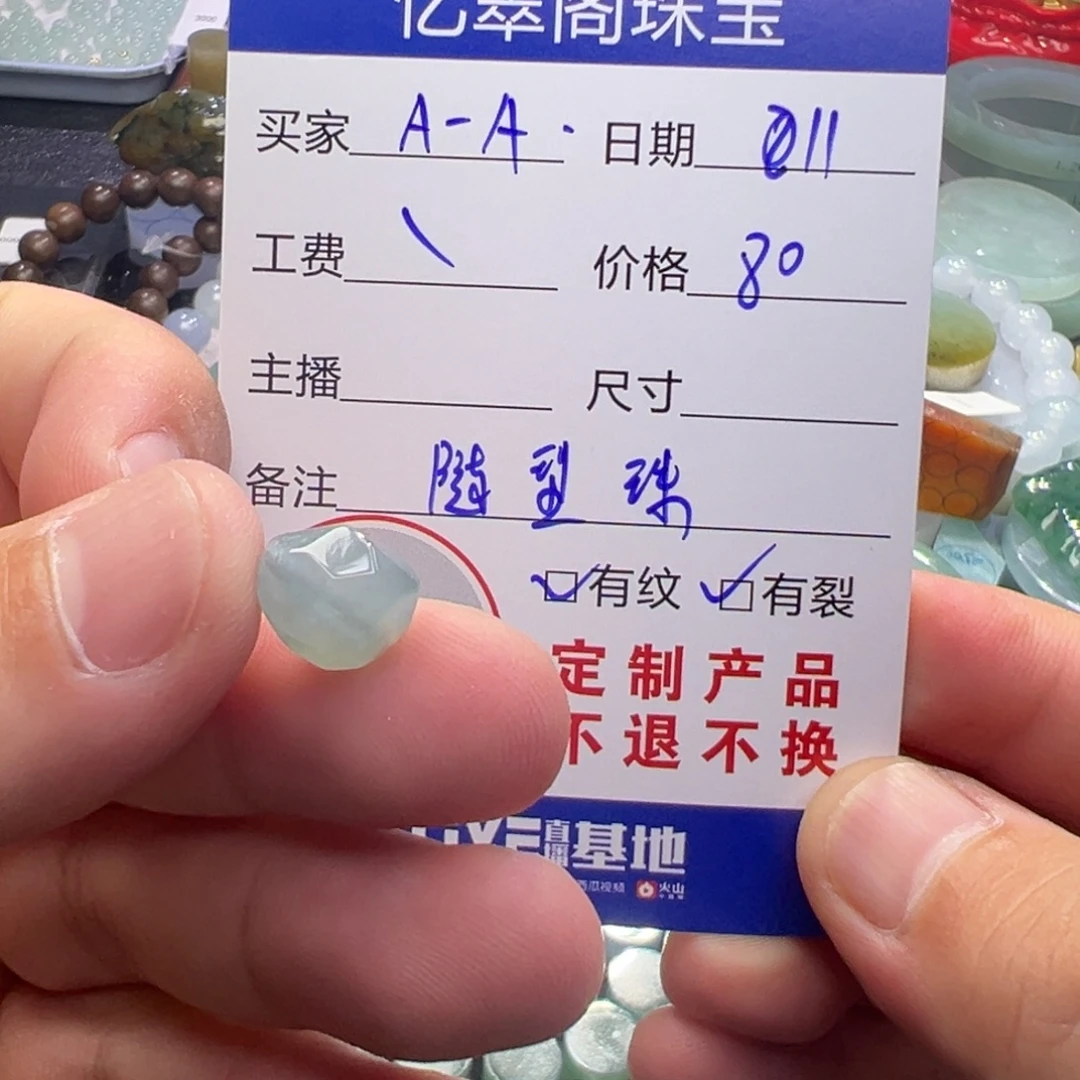 亿翠阁珠宝
买家 A-A· 日期 011
工费 \ 价格 80
主播 尺寸
备注 随型珠
有纹 有裂
定制产品
不退不换
LIVE直播基地
西瓜视频 火山